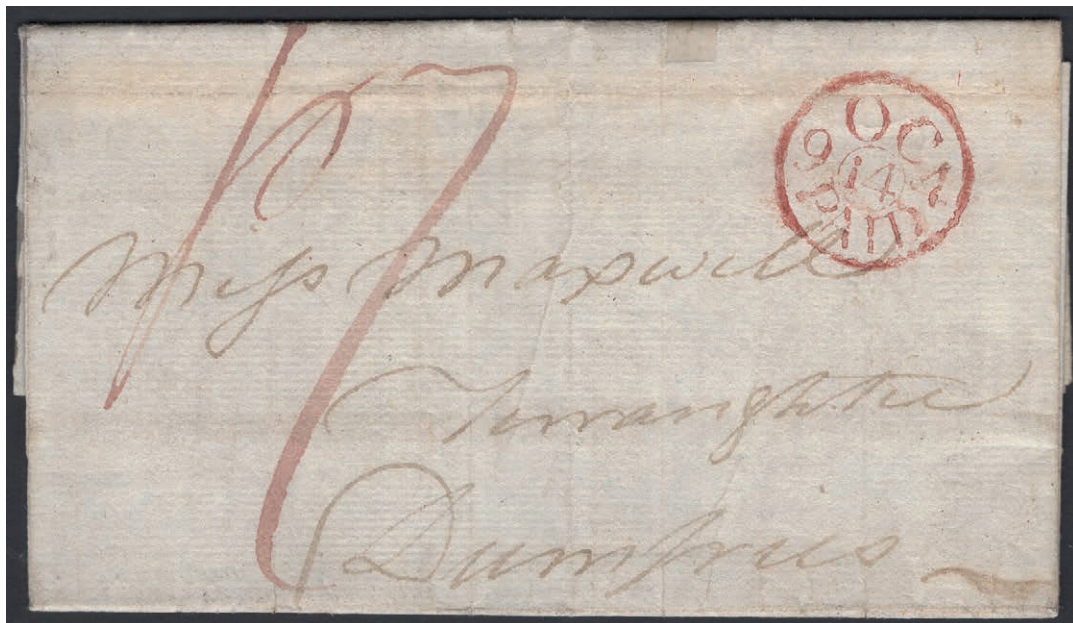 1/7
OC
14
Miſs Maxwell
Terraughtie
Dumfries